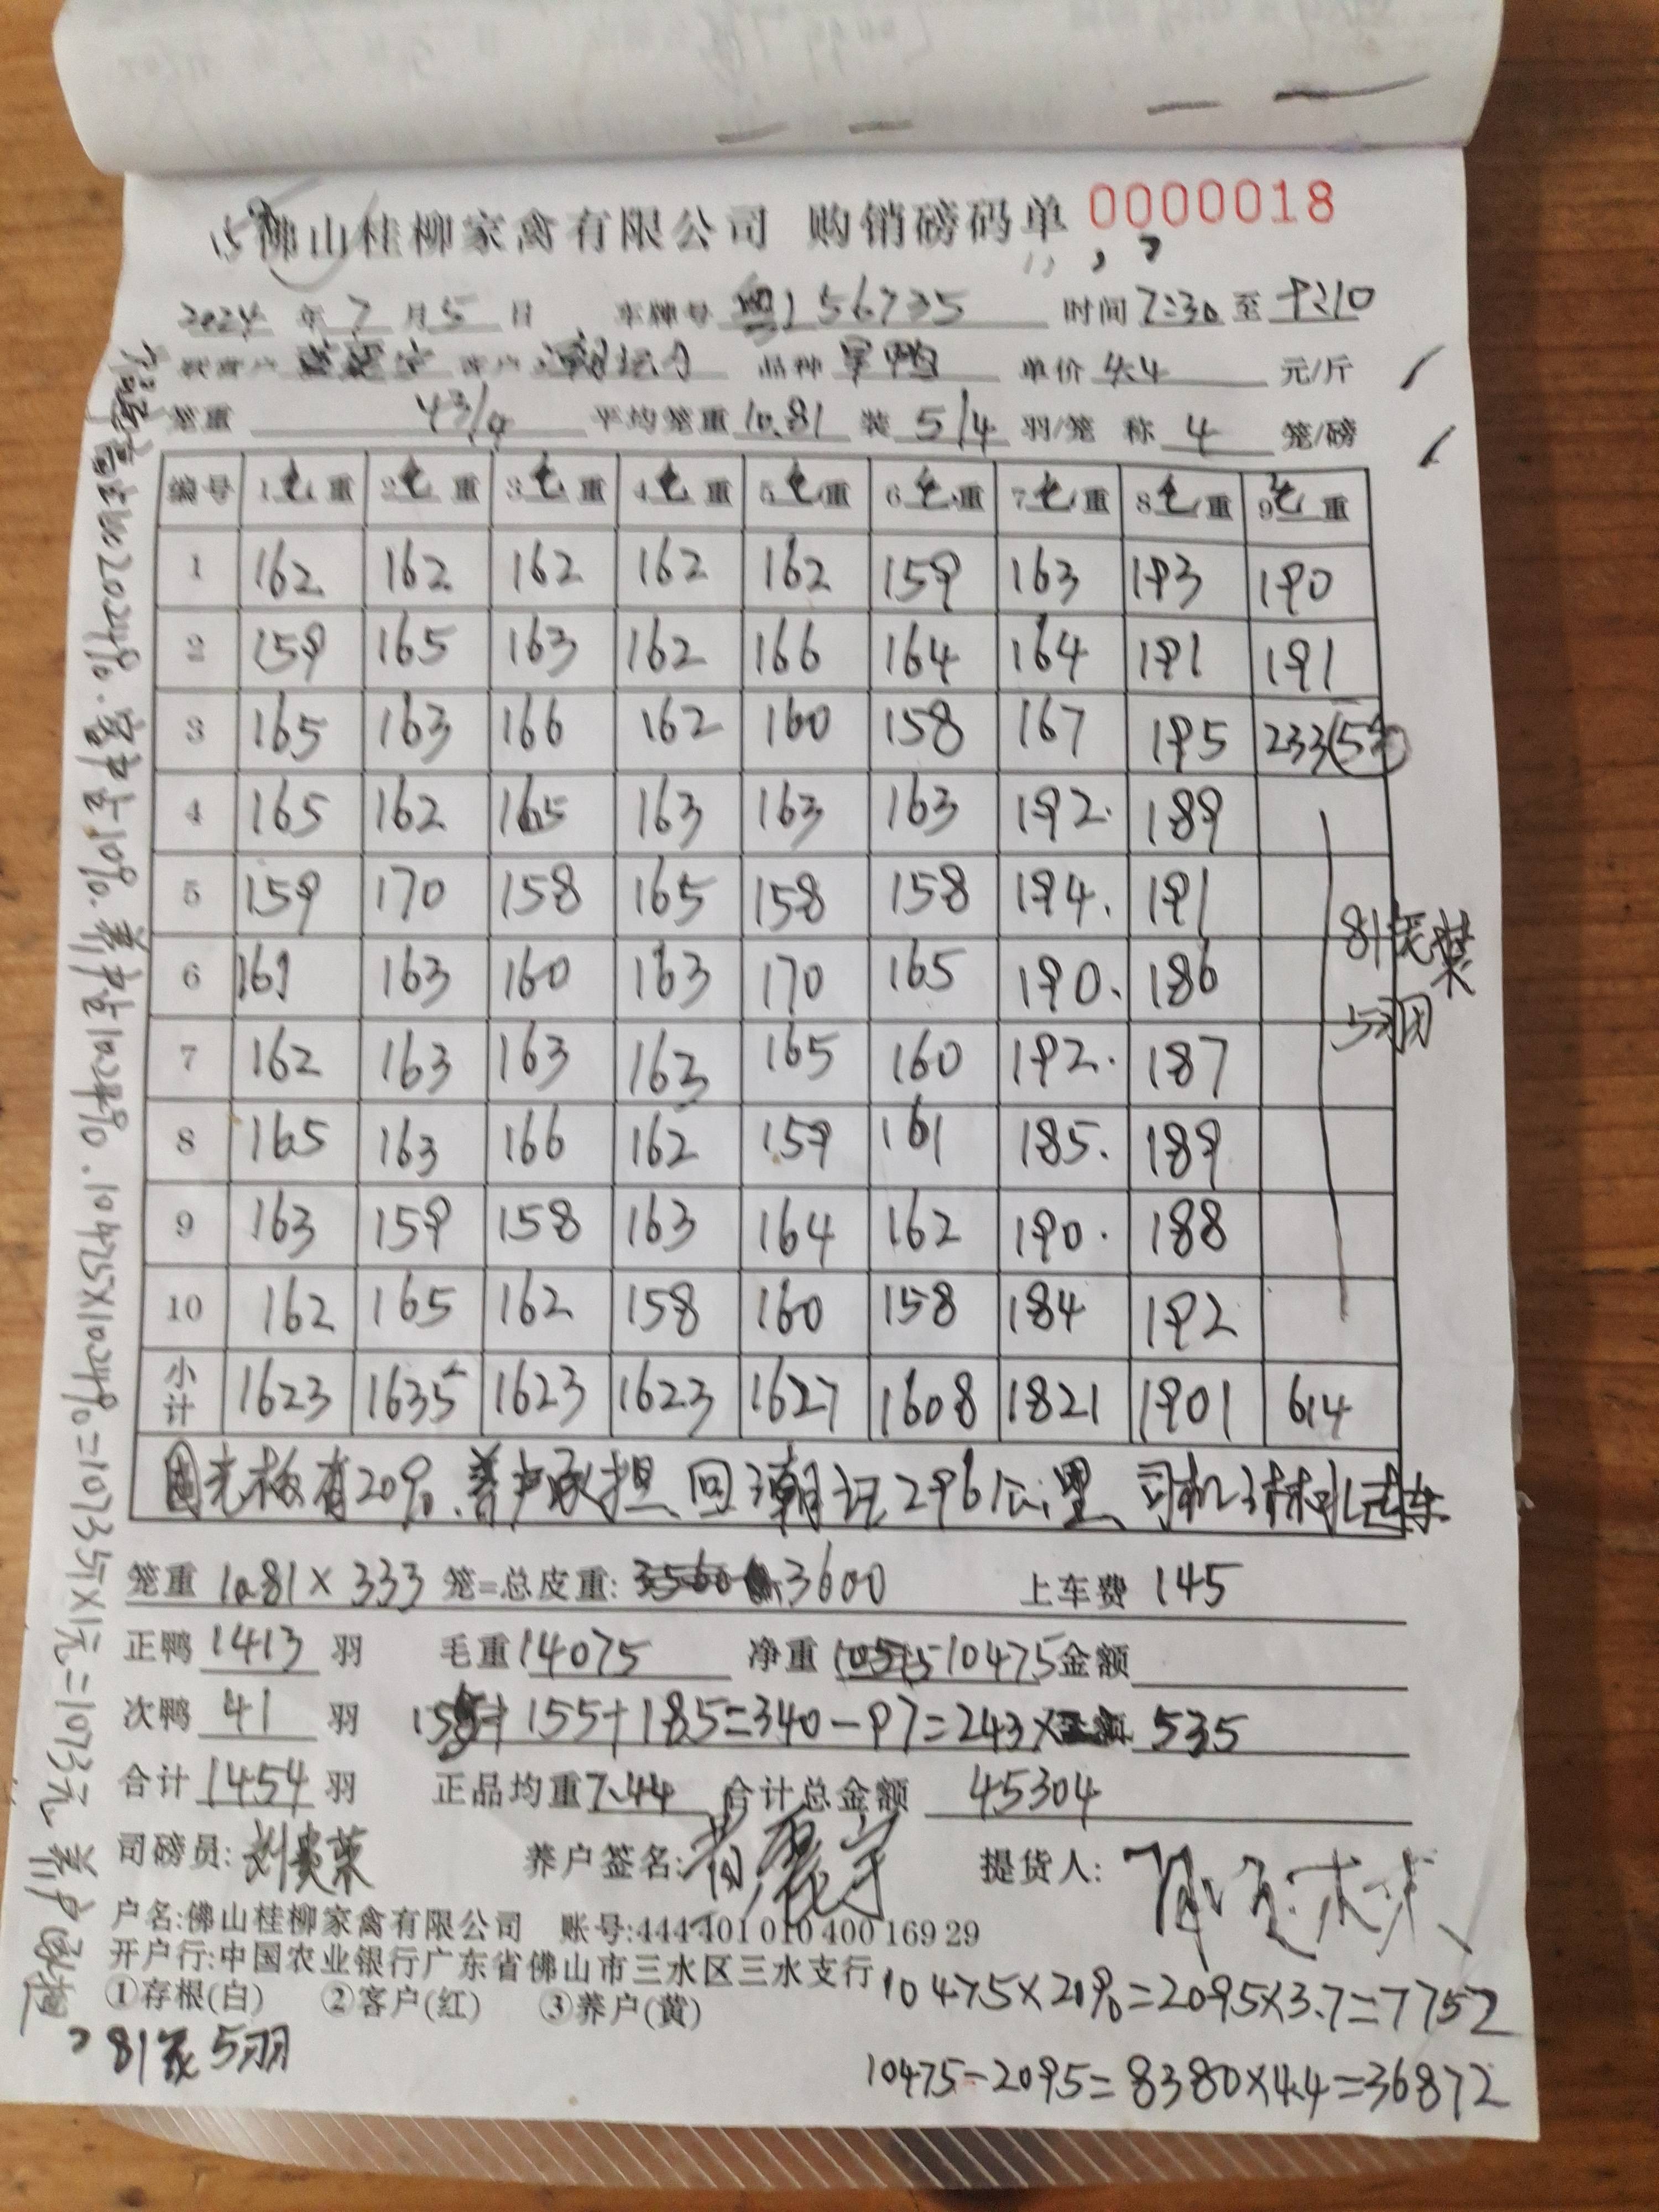 佛山桂柳家禽有限公司 购销磅码单 0000018
2024 年 7 月 5 日 车牌号 粤J 56735 时间 7:30 至 9:10
客户 品种 旱鸭 单价 4.4 元/斤
笼重 43/4 平均笼重 10.81 装 5/4 羽/笼 称 4 笼/磅
编号 1毛重 2毛重 3毛重 4毛重 5毛重 6毛重 7毛重 8毛重 9毛重
1 162 162 162 162 162 159 163 193 190
2 159 165 163 162 166 164 164 191 191
3 165 163 166 162 160 158 167 195 233(5笼)
4 165 162 165 163 163 163 192. 189
5 159 170 158 165 158 158 194. 191
6 161 163 160 163 170 165 190. 186
7 162 163 163 163 165 160 192. 187
8 165 163 166 162 159 161 185. 189
9 163 159 158 163 164 162 190. 188
10 162 165 162 158 160 158 184 192
小计 1623 1635 1623 1623 1627 1608 1821 1901 614
81笼装
5羽
光板有20%.养户承担.回潮汕296公里.司机
笼重 10.81×333 笼=总皮重: 3600 上车费 145
正鸭 1413 羽 毛重 14075 净重 10475 金额
次鸭 41 羽 155+185=340-97=243× 535
合计 1454 羽 正品均重 7.44 合计总金额 45304
司磅员: 刘贵荣 养户签名: 提货人:
户名:佛山桂柳家禽有限公司 账号:44440101040016929
开户行:中国农业银行广东省佛山市三水区三水支行
①存根(白) ②客户(红) ③养户(黄)
10475×20%=2095×3.7=7752
81笼5羽
10475-2095=8380×4.4=36872
20.24%.客户占10%.养户占10.24%.10475×10.24%=1073斤×1元=1073元 养户承担